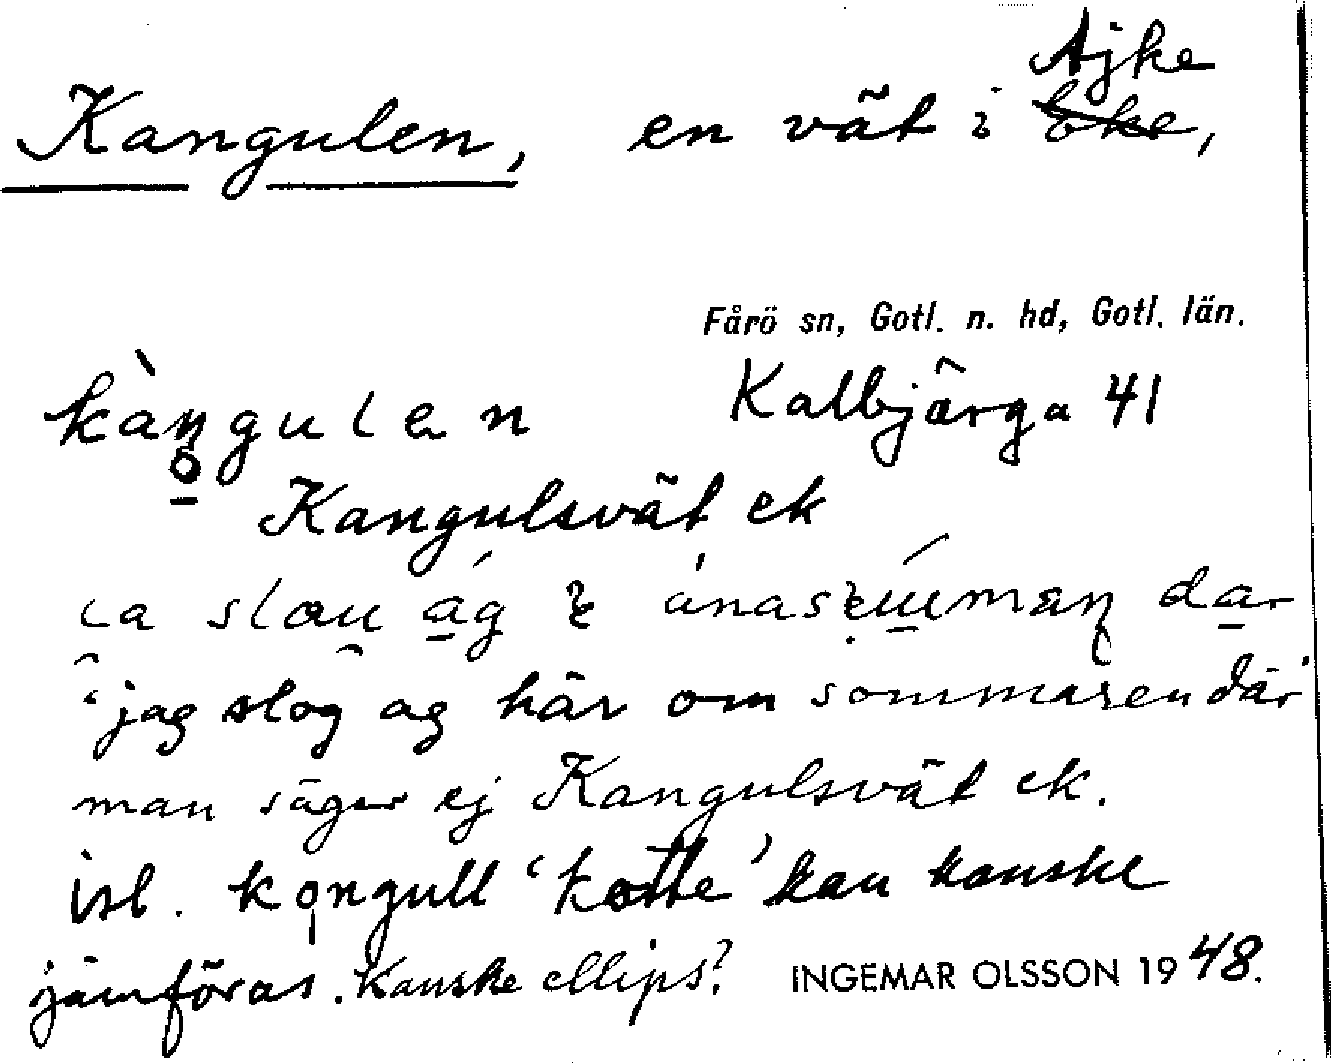 Ajke
Kangulen, en vät i Eke,
Fårö sn, Gotl. n. hd, Gotl. län.
kàngulen Kalbjärga 41
Kangulsvät ek
slau ag dar
'jag slog ag här om sommaren där'
man säger ej Kangulsvät ek.
isl. kǫngull 'kotte' kan kanske
jämföras. Kanske ellips? INGEMAR OLSSON 1948.